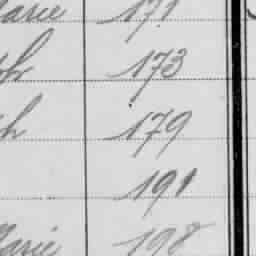 arie 171
ph 173
h 179
191
Marie 198